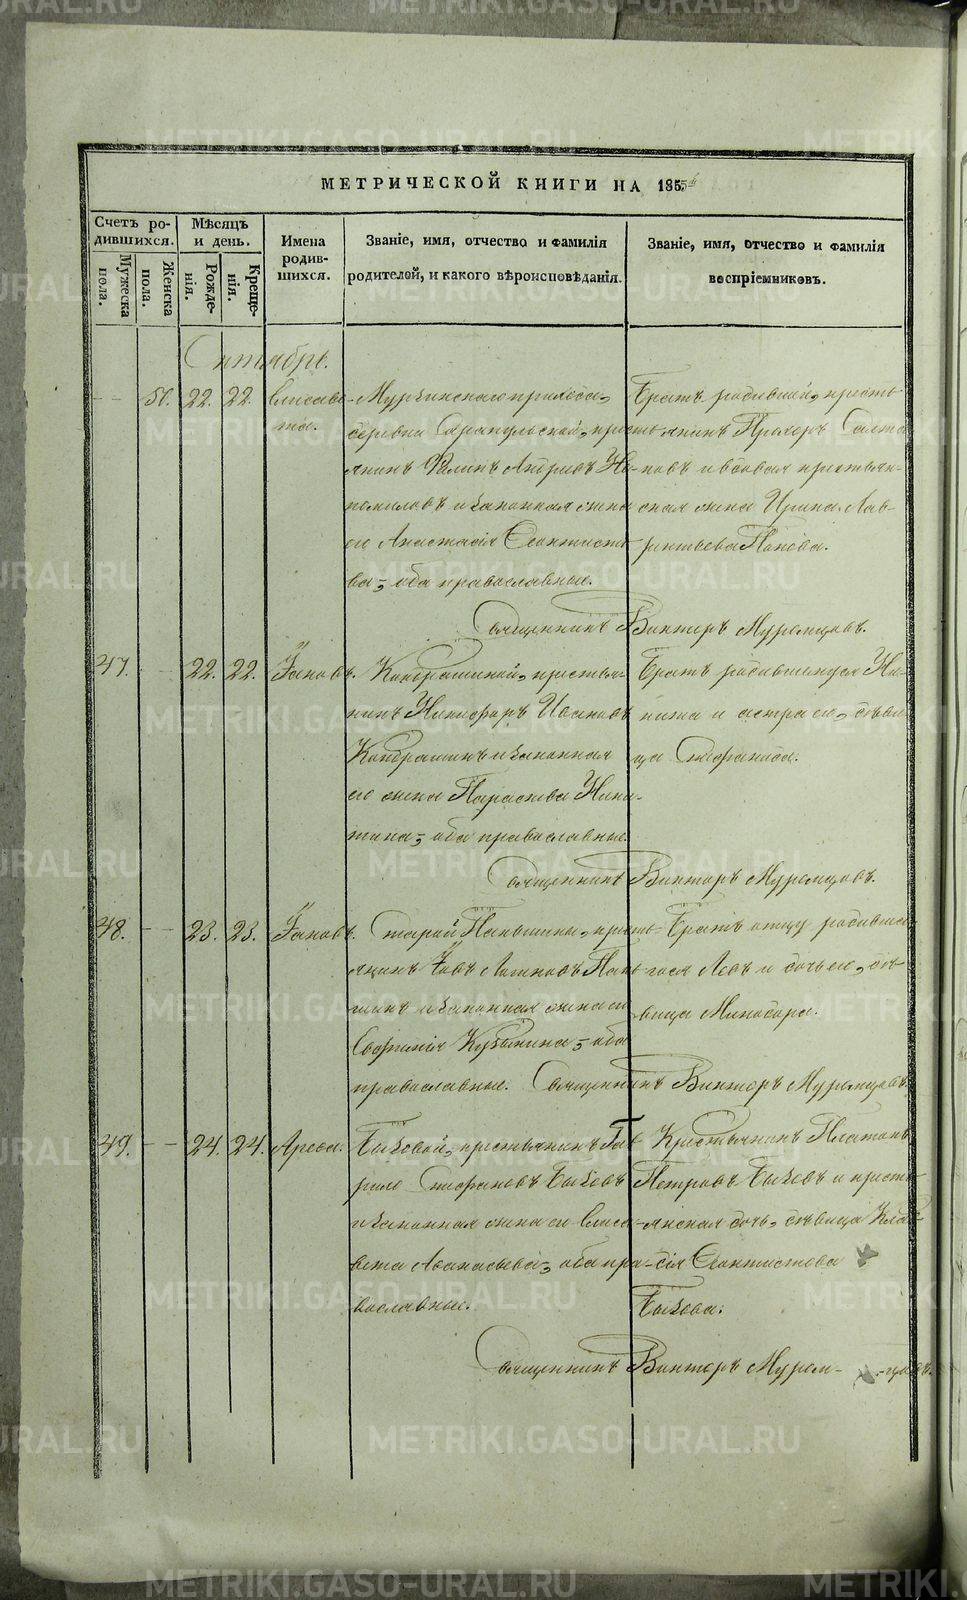 МЕТРИЧЕСКОЙ КНИГИ НА 1855
Счетъ ро-
дившихся.
Мужеска
пола.
Женска
пола.
Мѣсяцъ
и день.
Рожде-
нія.
Креще-
нія.
Имена
родив-
шихся.
Званіе, имя, отчество и фамилія
родителей, и какого вѣроисповѣданія.
Званіе, имя, отчество и фамилія
воспріемниковъ.
Сентябрь.
22. 22. Елисаве-
та.
Мурзинскаго прихода,
деревни Сарапульской, кресть-
янинъ Филипъ Андреевъ
и законная жена
его Анастасія Феоктисто-
ва, оба православные.
Братъ родившей, кресть-
янинъ Прохоръ
и вдовая крестьян-
ская жена Ирина Лав-
рентьева Панова.
Священникъ Викторъ Муромцовъ.
47. 22. 22. Іаковъ.
Кондрашиной, крестья-
нинъ Никифоръ Ивановъ
Кондрашинъ и законная
его жена Параскева Ники-
тина, оба православные.
Братъ родившемуся Ни-
кита и сестра его, дѣви-
ца Стефанида.
Священникъ Викторъ Муромцовъ.
48. 23. 23. Іаковъ.
Старой Паньшины, кресть-
янинъ Іовъ Логиновъ Пань-
шинъ и законная жена его
Евфимія Кузьмина, оба
православные.
Братъ отцу родивша-
гося Левъ и дочь его, дѣ-
вица Минодора.
Священникъ Викторъ Муромцовъ.
49. 24. 24. Арефа.
Быковой, крестьянинъ Гав-
рило Стефановъ Быковъ
и законная жена его Елиса-
вета Афанасьева, оба пра-
вославные.
Крестьянинъ Платонъ
Петровъ Быковъ и кресть-
янская дочь, дѣвица Клав-
дія Феоктистова
Быкова.
Священникъ Викторъ Муром-
цовъ.
METRIKI.GASO-URAL.RU